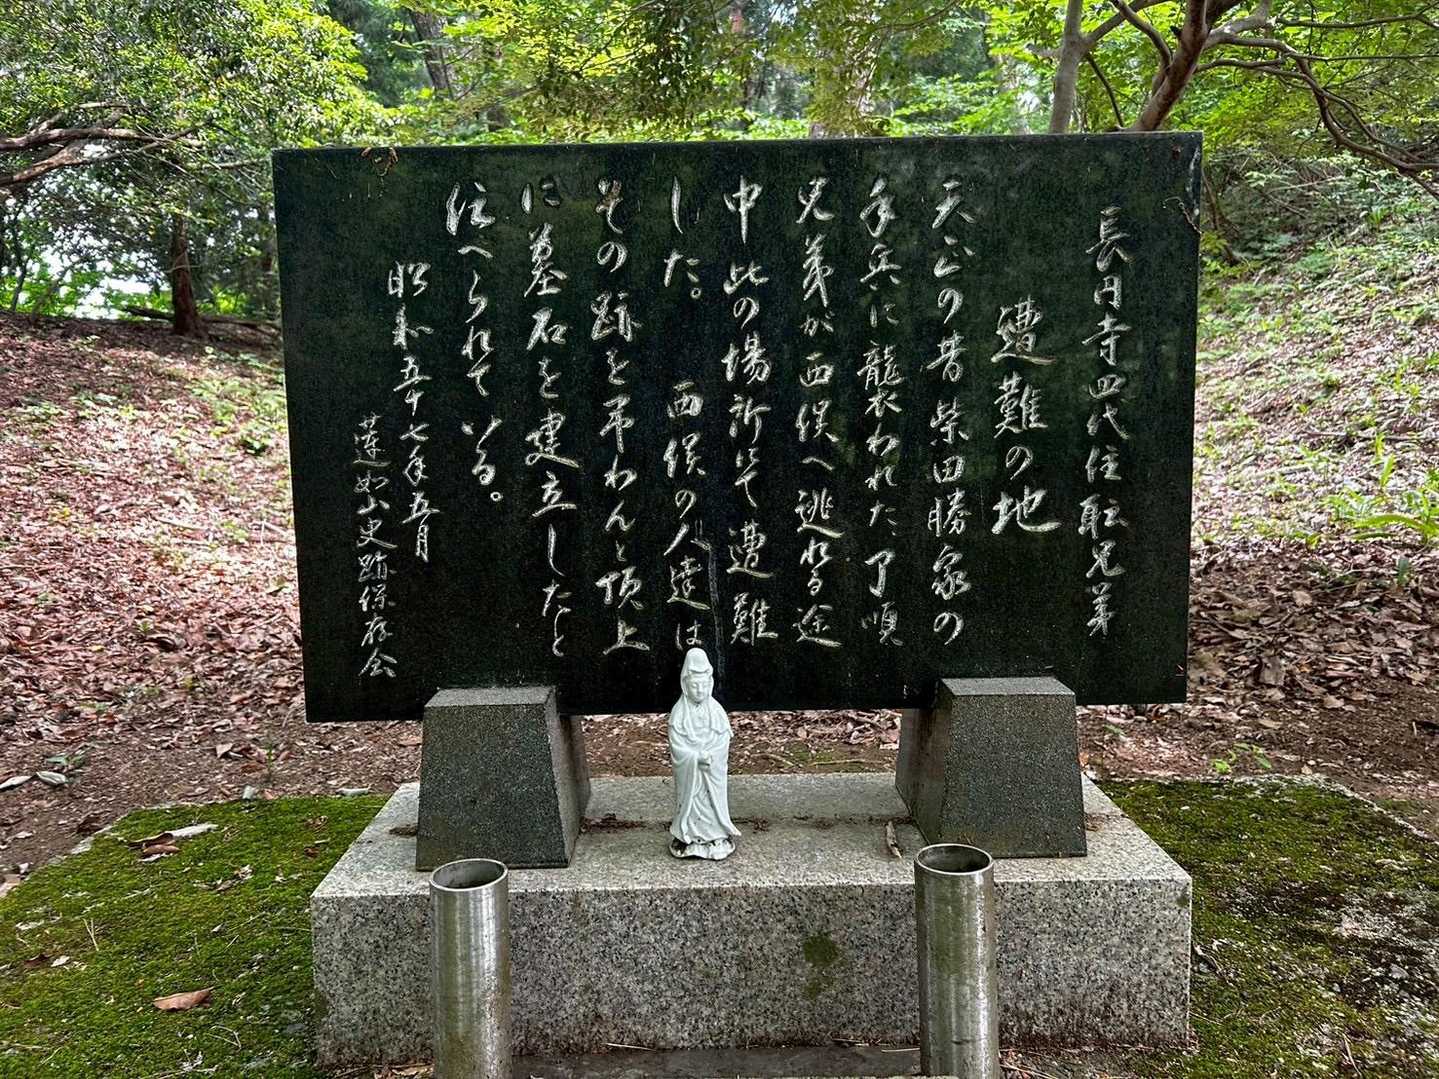 長円寺四代住職兄弟
遭難の地
天正の昔柴田勝家の
手兵に襲われた了順
兄弟が西俣へ逃れる途
中此の場所にて遭難
した。西俣の人達は
その跡を弔わんと頂上
に墓石を建立したと
伝へられている。
昭和五十七年五月
蓮如山史跡保存会